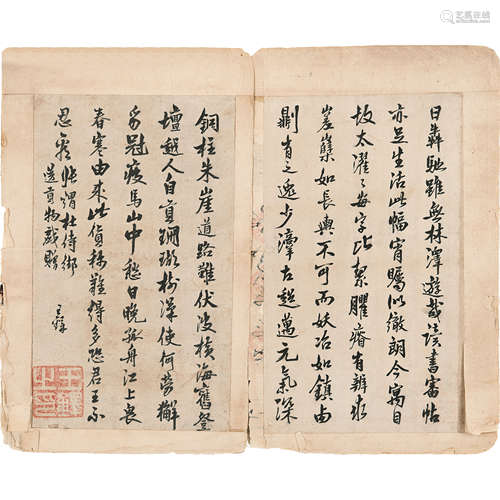 日犇馳雖無林澤遊哉讀書審帖
亦足生活此幅肯矚似徹朗今寓目
故太濯之每字比絜臞瘠肯辦求
如長輿不可而妖冶如鎮由
肯之逸少 古超邁元氣深
銅柱朱崖道路難伏波橫海舊登
壇越人自貢珊瑚樹漢使何勞獬
豸冠疲馬山中愁日晚孤舟江上畏
春寒由來此貨稱難得多恐君王不
忍看 張謂杜侍御
送貢物戲贈
王鐸